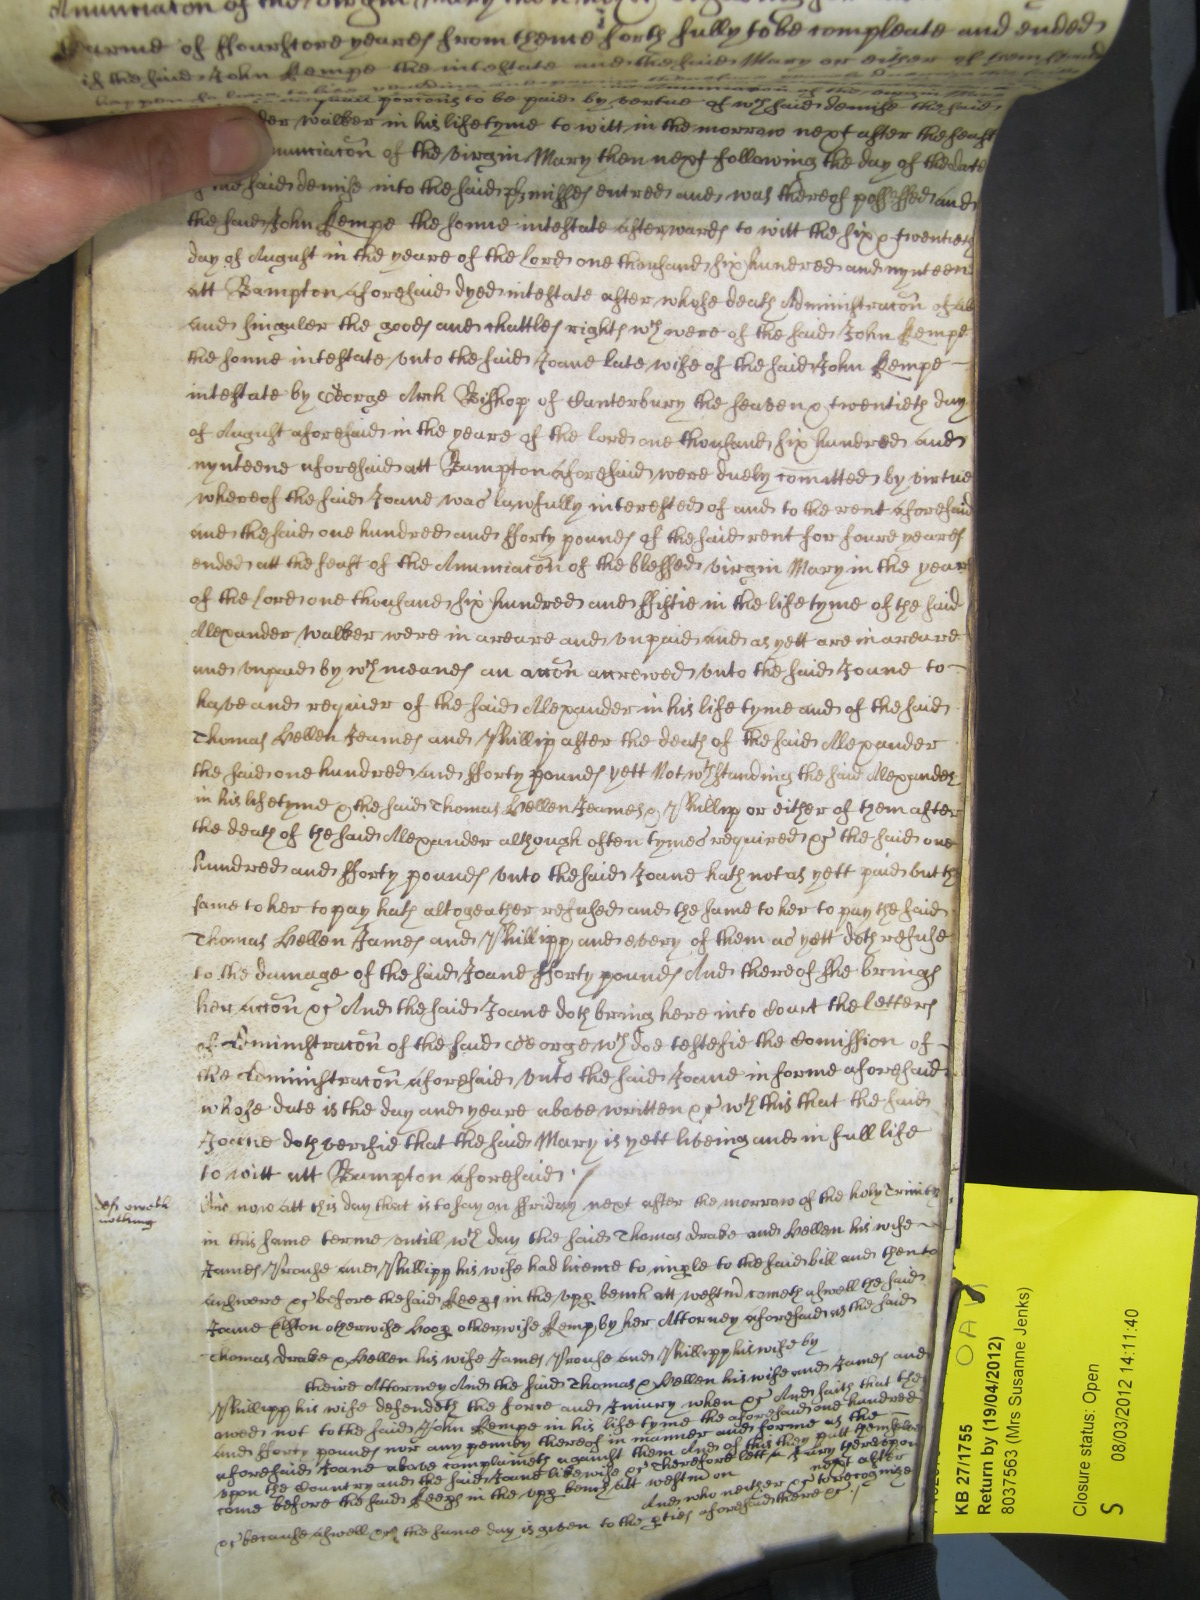 Anunciacon of the virgin Mary then next
tearme of ffourscore yeares from thence forth fully to be compleate and ended
if the said John Kempe the intestate and the said Mary or either of them should
happen so long to live
porcons to be paid by vertue of wch said demise the said
der Walker in his life tyme to witt in the morrow next after the feast
nunciacon of the virgin Mary then next following the day of the date
of the said demise into the said pmisses entred and was thereof possessed and
the said John Kempe the sonne intestate afterwards to witt the six & twentieth
day of August in the yeare of the Lord one thousand six hundred and nynteene
att Bampton aforesaid dyed intestate after whose death Administracon of all
and singuler the goodes and chattles rights wch were of the said John Kempe
the sonne intestate vnto the said Joane late wife of the said John Kempe
intestate by George Arch Bishop of Canterbury the seaven & twentieth day
of August aforesaid in the yeare of the lord one thousand six hundred and
nynteene aforesaid att Bampton aforesaid were duely comitted by virtue
whereof the said Joane was lawfully interested of and to the rent aforesaid
and the said one hundred and fforty poundes of the said rent for foure yeares
ended att the feast of the Anunciacon of the blessed virgin Mary in the year
of the Lord one thousand six hundred and ffiftie in the life tyme of the said
Alexander Walker were in areare and vnpaid and as yett are in areare
and vnpaid by wch meanes an accon accrewed vnto the said Joane to
have and requier of the said Alexander in his life tyme and of the said
Thomas Hellen Jeames and Phillip after the death of the said Alexander
the said one hundred and fforty poundes yett Notwthstanding the said Alexander
in his lifetyme & the said Thomas Hellen Jeames & Phillip or either of them after
the death of the said Alexander although often tymes required &c the said one
hundred and fforty poundes vnto the said Joane hath not as yett paid but the
same to her to pay hath altogeather refused and the same to her to pay the said
Thomas Hellen James and Phillipp and every of them as yett doth refuse
to the damage of the said Joane fforty poundes And thereof she brings
her accon &c And the said Joane doth bring here into Court the letters
of Administracon of the said George wch doe testefie the Comission of
the Administracon aforesaid vnto the said Joane in forme aforesaid
whose date is the day and yeare above written &c wth this that the said
Joane doth verifie that the said Mary is yett liveing and in full life
to witt att Bampton aforesaid
def. oweth
nothing
And now att this day that is to say on ffriday next after the morrow of the holy Trinity
in this same terme vntill wch day the said Thomas Drake and Hellen his wife
James Prouse and Phillipp his wife had licence to imple to the said bill and then to
answere &c before the said Keeps in the vpp bench att westm cometh aswell the said
Jane otherwise otherwise Kemp by her Attorney aforesaid as the said
Thomas Drake & Hellen his wife James Prouse and Phillipp his wife by
theire Attorney And the said Thomas & Hellen his wife and James and
Phillipp his wife defendeth the force and Iniury when &c And saith that the
owed not to the said John Kempe in his life tyme the aforesaid one hundred
and fforty poundes nor any penney thereof in manner and forme as the
aforesaid Joane above complaineth against them And of this they putt themselves
vpon the Country and the said Joane likewise &c Therefore lett a Jury therevpon
come before the said Keeps in the vpp bench att westm on next after
And who neither &c to recognize
&c because aswell &c the same day is given to the pties aforesaid there &c
KB 27/1755
Return by (19/04/2012)
8037563 (Mrs Susanne Jenks)
Closure status: Open
S 08/03/2012 14:11:40